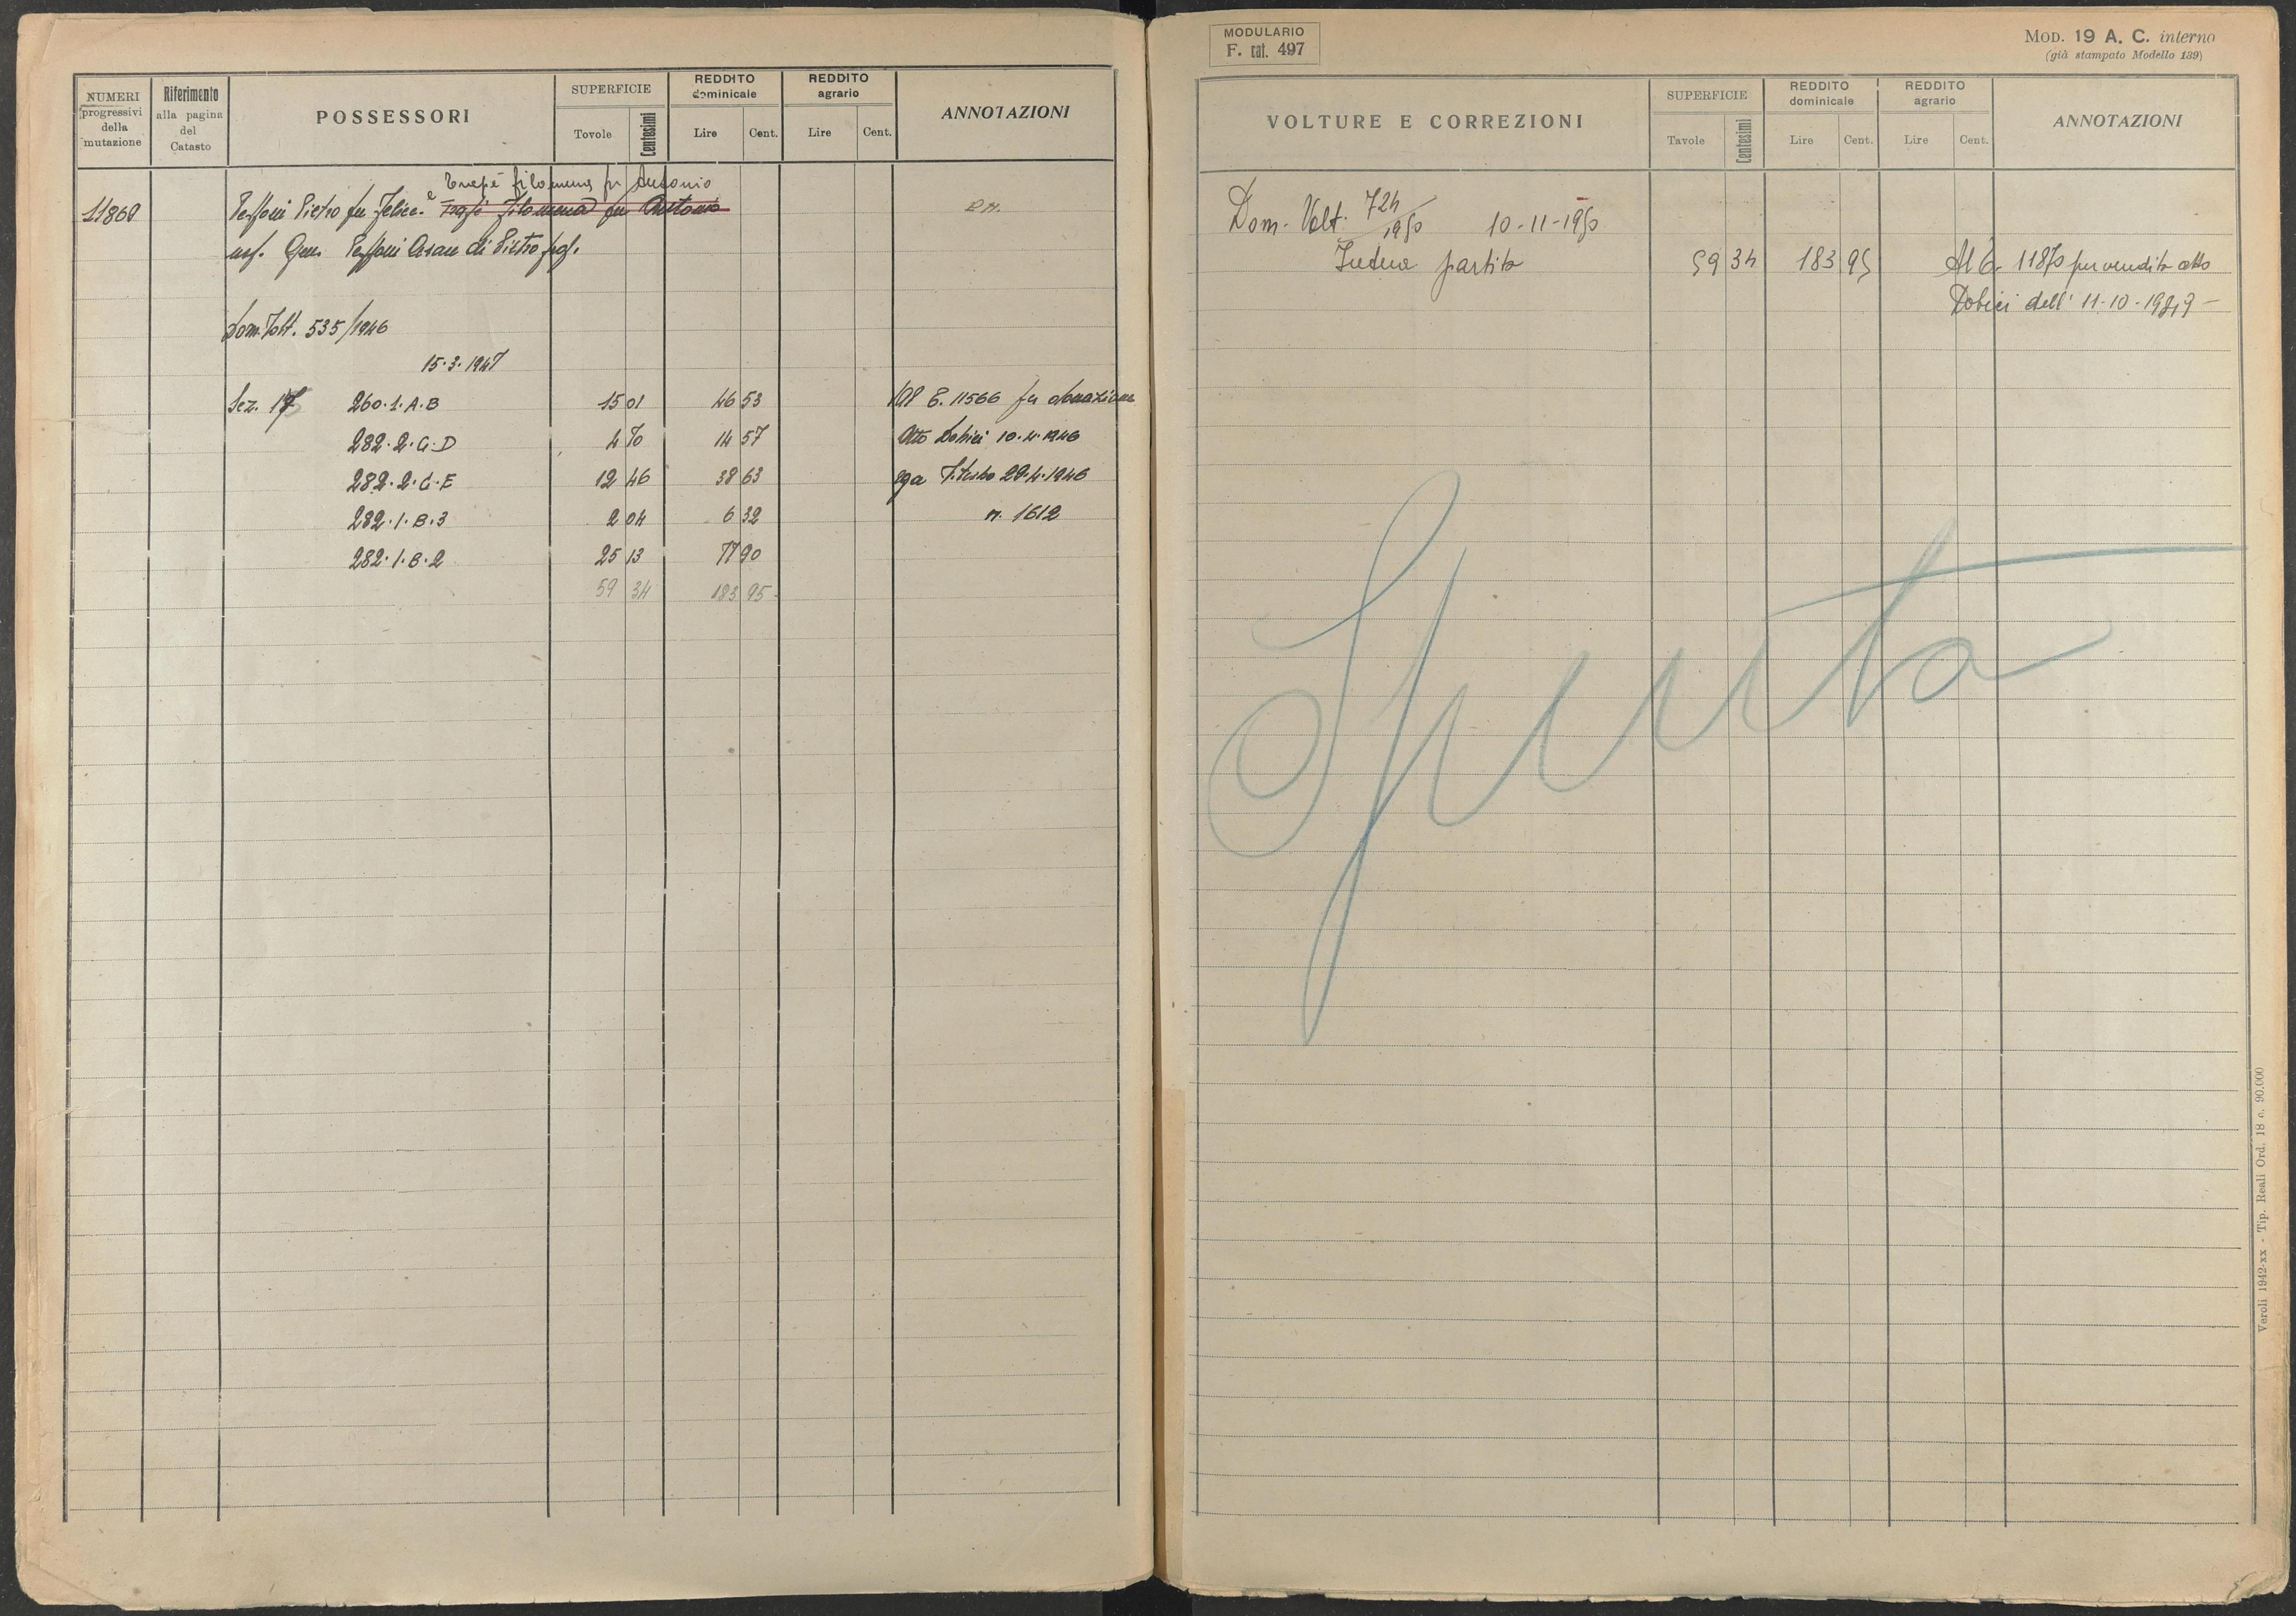 NUMERI progressivi della mutazione
Riferimento alla pagina del Catasto
POSSESSORI
SUPERFICIE
Tavole
Centesimi
REDDITO dominicale
Lire
Cent.
REDDITO agrario
Lire
Cent.
ANNOTAZIONI
filomena fu Antonio
11860 Pietro fu Felice e Filomena fu Antonio
usf. Gen. di Pietro prof.
Dom. Volt. 535/1946
15.3.1947
Sez. 260.1.A.B 15 01 46 53 Al C. 11566 per donazione
282.2.G.D 4 70 14 57 Atto Dobici 10.4.1946
282.2.G.E 12 46 38 63 Viterbo 29.4.1946
282.1.B.3 2 04 6 32 n. 1612
282.1.B.2 25 13 77 90
59 34 183 95
MODULARIO
F. cat. 497
MOD. 19 A. C. interno
(già stampato Modello 139)
VOLTURE E CORREZIONI
SUPERFICIE
Tavole
Centesimi
REDDITO dominicale
Lire
Cent.
REDDITO agrario
Lire
Cent.
ANNOTAZIONI
Dom. Volt. 724/1950 10-11-1950
Intera partita 59 34 183 95 Al C. 11870 per vendita atto
Dobici dell' 11-10-1949 -
Spenta
Veroli 1942-xx - Tip. Reali Ord. 18 c. 90.000